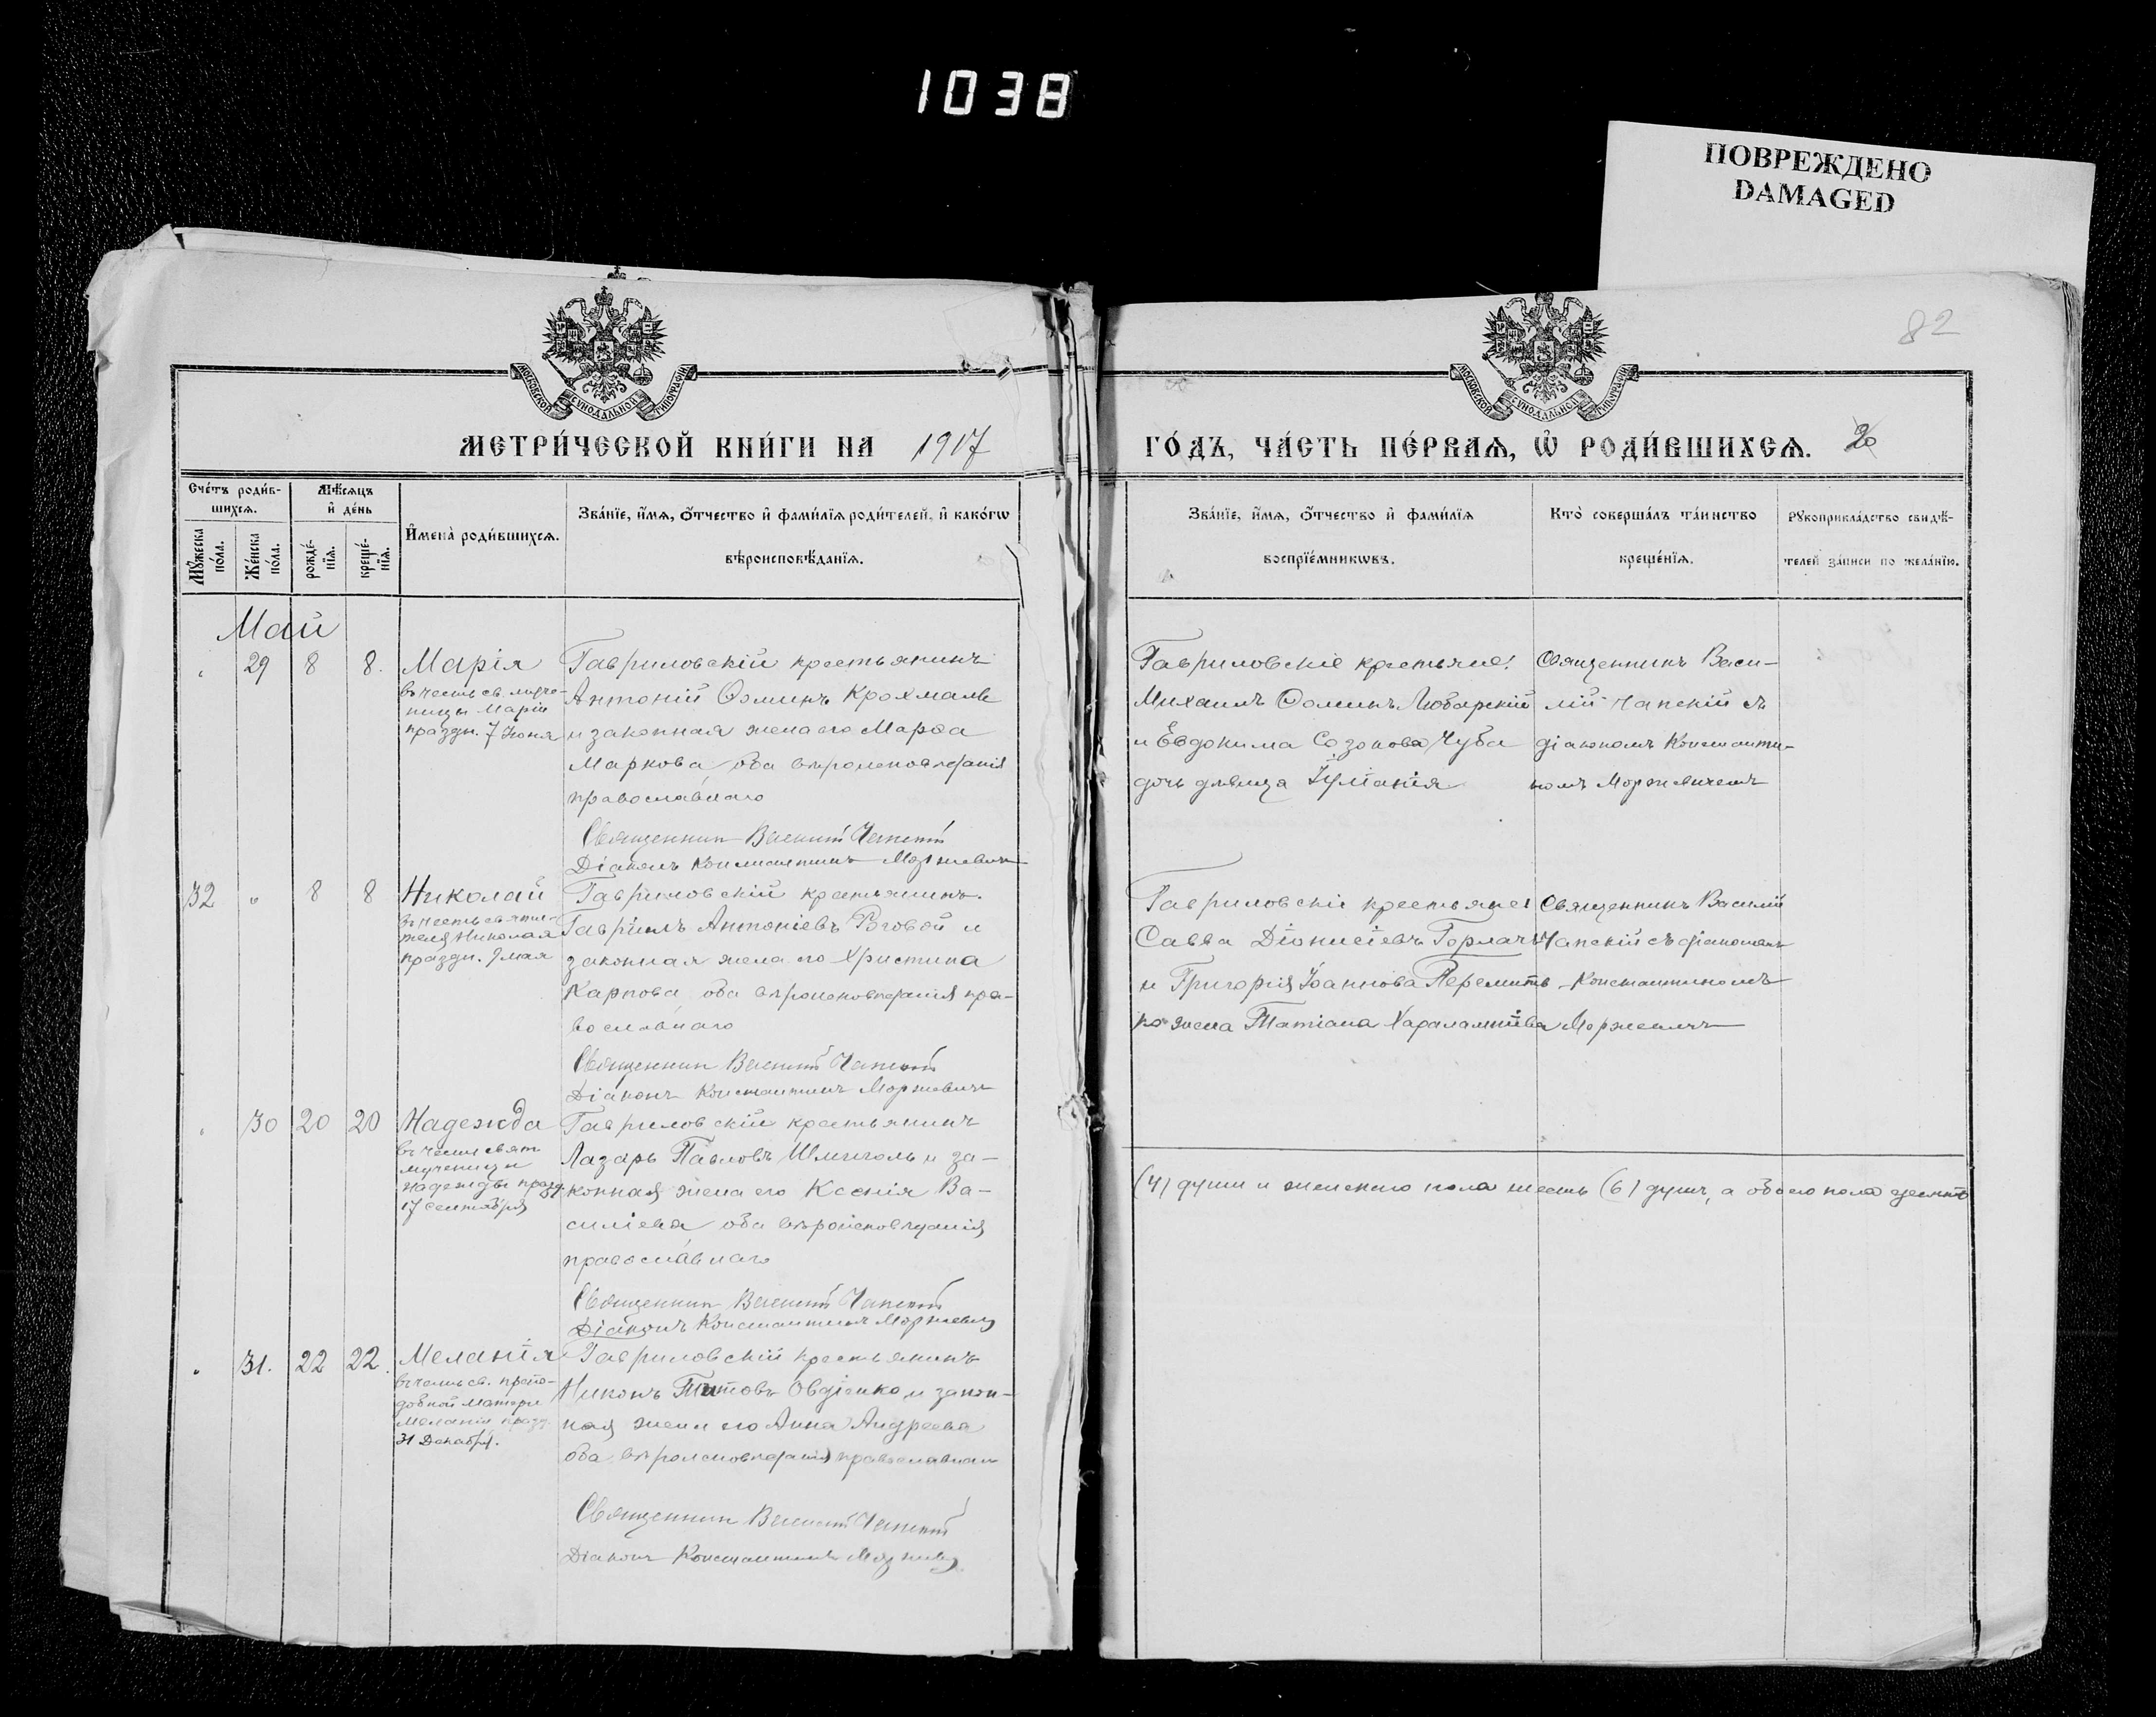 1038
ПОВРЕЖДЕНО
DAMAGED
82
МОСКОВСКОЙ СѴНОДАЛЬНОЙ ТИПОГРАФІИ
МОСКОВСКОЙ СѴНОДАЛЬНОЙ ТИПОГРАФІИ
МЕТРИ́ЧЕСКОЙ КНИ́ГИ НА 1917
ГО́ДЪ, ЧА́СТЬ ПЕ́РВАѦ, Ѡ РОДИ́ВШИХСѦ. 20
Сче́тъ роди́в-
шихсѧ.
Мꙋ́жеска
по́ла.
Же́нска
по́ла.
Мѣ́сѧцъ
и҆ де́нь
рожде́-
нїѧ.
креще́-
нїѧ.
И҆мена̀ роди́вшихсѧ.
Зва́нїе, и҆́мѧ, ѻ҆́тчество и҆ фами́лїѧ роди́телей, и҆ како́гѡ
вѣроисповѣ́данїѧ.
Зва́нїе, и҆́мѧ, ѻ҆́тчество и҆ фами́лїѧ
воспрїе́мникѡвъ.
Кто̀ соверша́лъ та́инство
креще́нїѧ.
Рꙋкоприкла́дство свидѣ́-
телей за́писи по жела́нїю.
Май
" 29 8 8. Марія
въ честь св. муче-
ницы Маріи
праздн. 7 Іюня
Гавриловскій крестьянинъ
Антоній Ѳоминъ Крохмаль
и законная жена его Марѳа
Маркова, оба вѣроисповѣданія
православнаго
Священник Василій Чапскій
Діаконъ Константинъ Моржевич
Гавриловскіе крестьяне:
Михаилъ Ѳоминъ Любарскій
и Евдокима Созонова Чуба
дочь дѣвица Іуліанія
Священникъ Васи-
лій Чапскій съ
діакономъ Константи-
номъ Моржевичемъ
32 " 8 8 Николай
въ честь святи-
теля Николая
праздн. 9 мая
Гавриловскій крестьянинъ
Гавріилъ Антоніевъ Роговой и
законная жена его Христина
Карпова, оба вѣроисповѣданія пра-
вославнаго
Священник Василій Чапскій
Діаконъ Константинъ Моржевичъ
Гавриловскіе крестьяне:
Савва Діонисіевъ Горлачъ
и Григорія Іоаннова
жена Татіана Харалампіева
Священникъ Василій
Чапскій съ діакономъ
Константиномъ
" 30 20 20 Надежда
въ честь свят.
мученицы
Надежды празд.
17 Сентября
Гавриловскій крестьянинъ
Лазарь Павловъ и за-
конная жена его Ксенія Ва-
силіева, оба вѣроисповѣданія
православнаго
Священник Василій Чапскій
Діаконъ Константинъ Моржевич
" 31. 22 22. Меланія
въ честь св. препо-
добной матери
Меланіи, празд.
31 Декабря.
Гавриловскій крестьянинъ
Никонъ Титовъ Овдіенко и закон-
ная жена его Анна Андреева
оба вѣроисповѣданія православнаго
Священник Василій Чапскій
Діаконъ Константинъ Моржевич
(4) души и женскаго пола шесть (6) душъ, а обоего пола десять